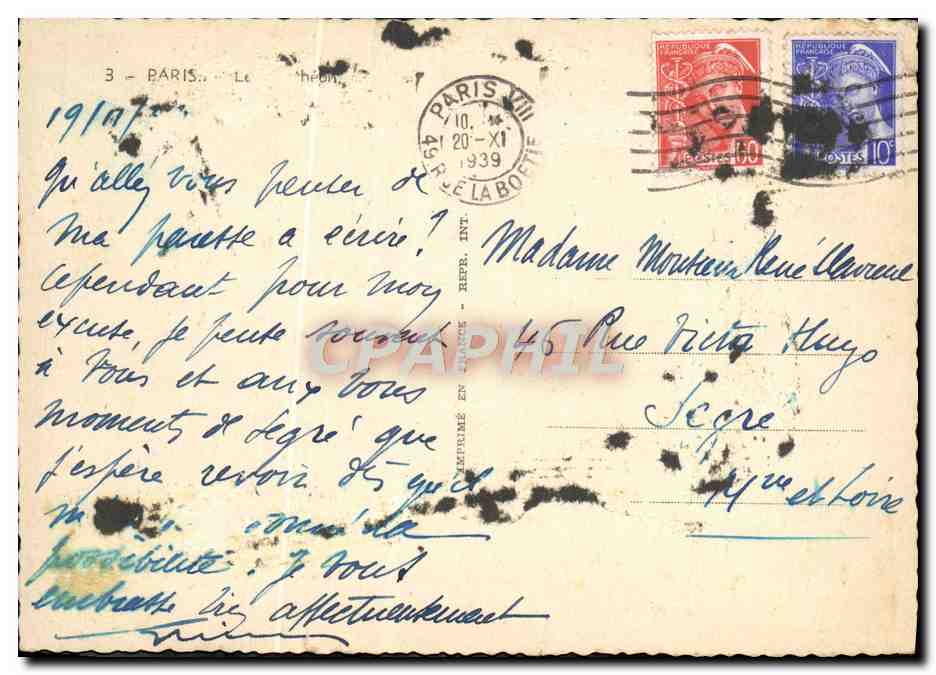 3 - PARIS.
19/11/
Qu'allez vous penser de
ma paresse a écrire!
Cependant pour mon
excuse, je pense souvent
à vous et aux bons
moments de Segré que
j'espère revoir dès qu'il
possibilité. Je vous
embrasse bien affectueusement
PARIS VIII
20-XI
1939
49 R. DE LA BOETIE
IMPRIMÉ EN FRANCE - REPR. INT.
RÉPUBLIQUE FRANÇAISE
POSTES 60
RÉPUBLIQUE FRANÇAISE
POSTES 10c
Madame Monsieur René
45 Rue Victor Hugo
Segré
M ne et Loire
CPAPHIL